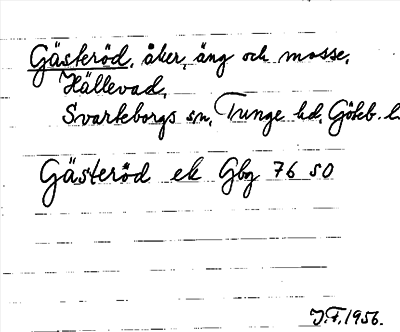 Gästeröd, åker, äng och mosse,
Hällevad,
Svarteborgs sn, Tunge hd, Göteb. l.
Gästeröd ek Gbg 76 SO
J.F. 1956.